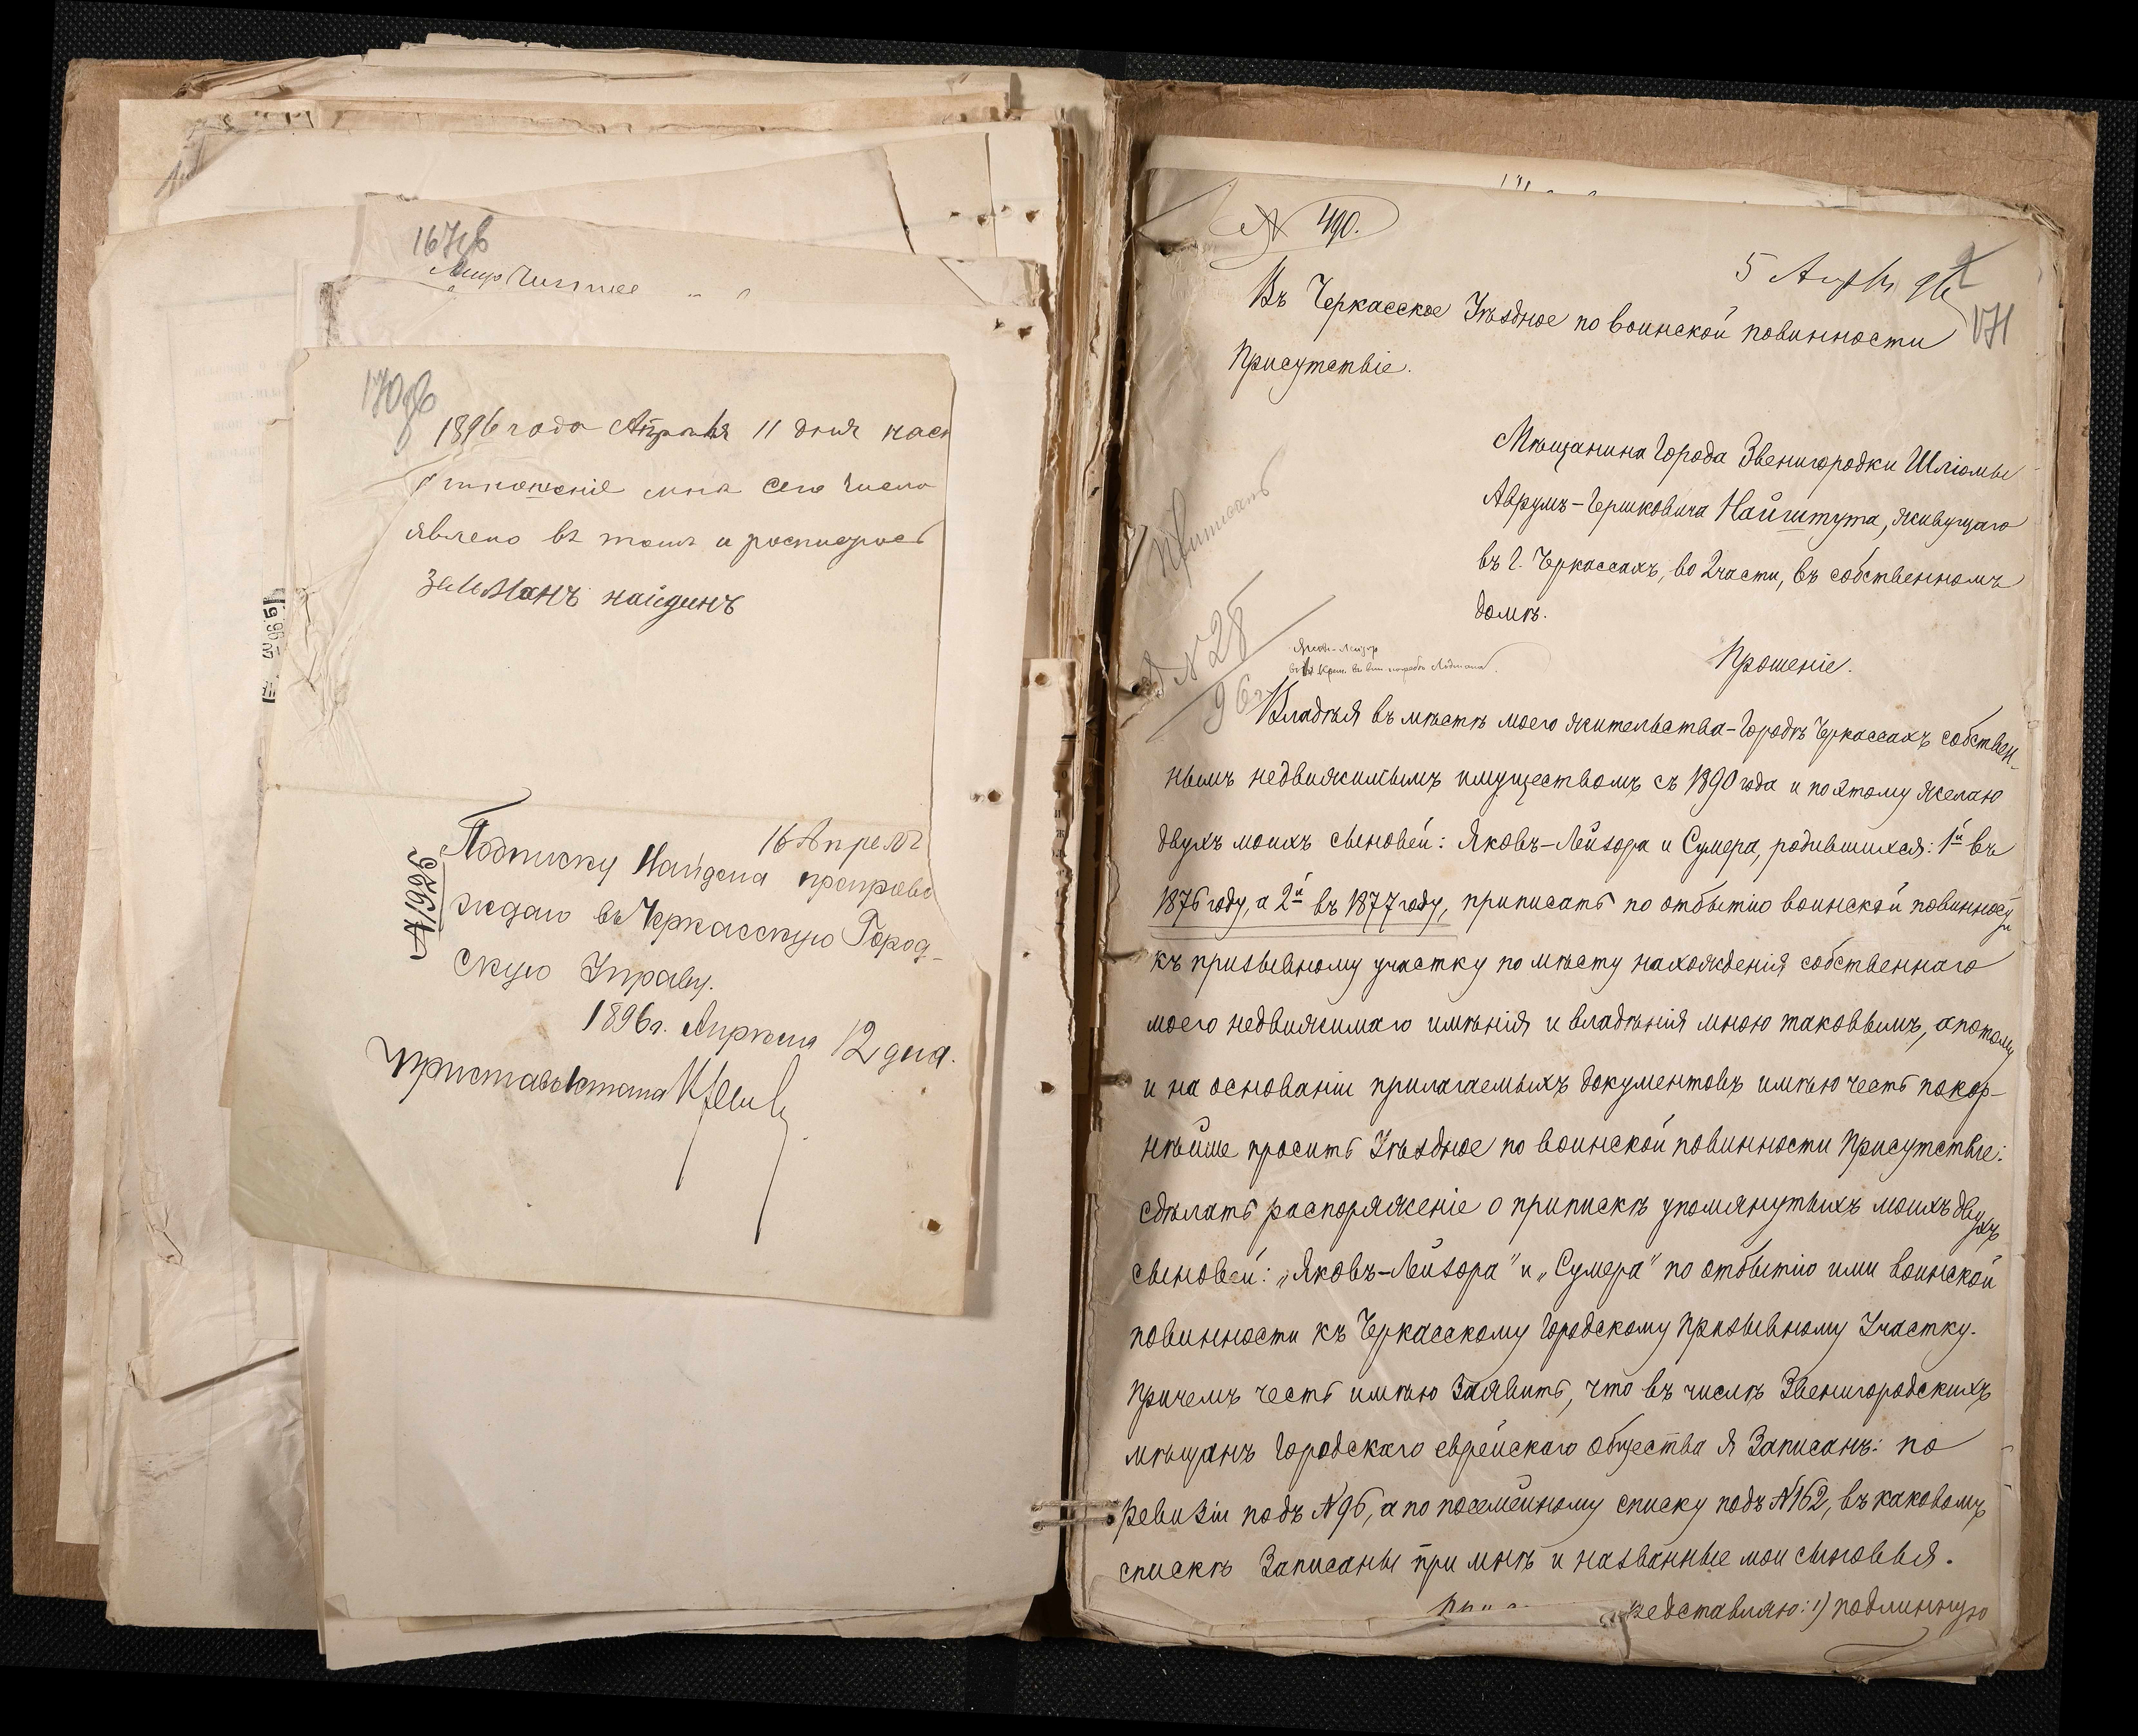 167об
170об
1896 года Апреля 11 дня наст
отношеніе мнѣ сего числа
явлено въ томъ и росписуюсь
Зельманъ найдинъ
16 Апреля
Подписку Найдена препрово
ждаю въ Черкасскую Город-
скую Управу.
1896 г. Апрѣля 12 дня.
Приставъ 1 стана
№ 1925
№ 490.
5 Апр 96
171
Въ Черкасское Уѣздное по воинской повинности
Присутствіе.
Мѣщанина города Звенигородки Шліомы
Аврумъ-Гершковича Найштута, живущаго
въ г. Черкассахъ, во 2 части, въ собственномъ
домѣ.
Приписать
№ 28
96 г
Прошеніе.
Владѣя въ мѣстѣ моего жительства - Городѣ Черкассахъ собствен-
нымъ недвижимымъ имуществомъ съ 1890 года и поэтому желаю
двухъ моихъ сыновей: Яковъ-Лейзора и Сумера, родившихся: 1й въ
1876 году, а 2й въ 1877 году, приписать по отбытію воинской повинности
къ призывному участку по мѣсту нахожденія собственнаго
моего недвижимаго имѣнія и владѣнія мною таковымъ, а потому
и на основаніи прилагаемыхъ документовъ имѣю честь покор-
нѣйше просить Уѣздное по воинской повинности Присутствіе:
сдѣлать распоряженіе о припискѣ упомянутыхъ моихъ двухъ
сыновей: „Яковъ-Лейзора" и „Сумера" по отбытію ими воинской
повинности къ Черкасскому Городскому Призывному Участку.
Причемъ честь имѣю Заявить, что въ числѣ Звенигородскихъ
мѣщанъ Городскаго еврейскаго общества я Записанъ: по
Ревизіи подъ №96, а по посемейному списку подъ №162, въ каковомъ
спискѣ Записаны при мнѣ и названные мои сыновья.
редставляю: 1) подлинную